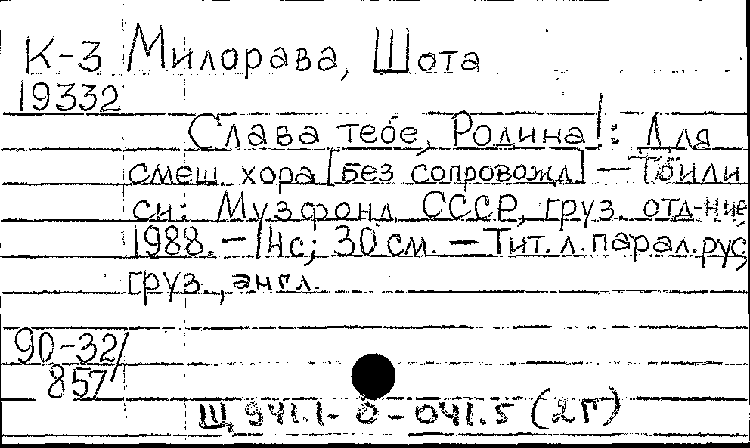 К-3 Милорава, Шота
19332
Слава тебе, Родина!: Для
смеш. хора [без сопровожд.] — Тбили
си: Музфонд СССР, груз. отд-ние
1988. — 14с; 30 см. — Тит. л. парал. рус,
груз., англ.
90-32/
857
Щ 941.1-0-041.5 (2Г)